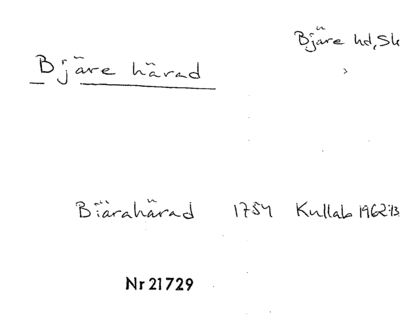 Bjäre hd, Sk
Bjäre härad
Biärahärad 1754 Kullab 1962:13
Nr 21729